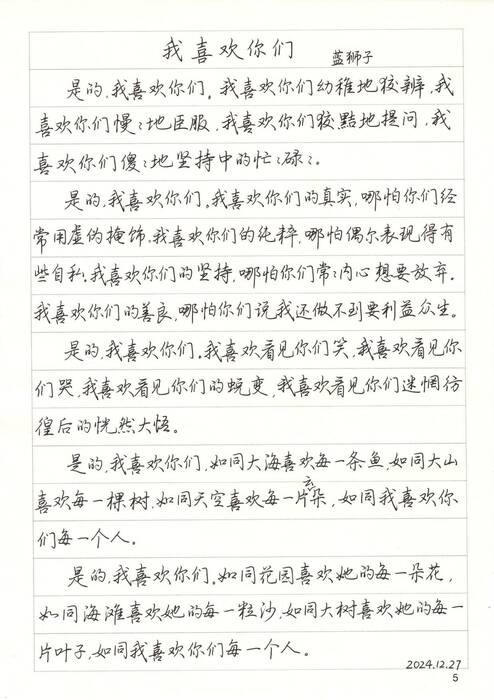 我喜欢你们 蓝狮子
是的，我喜欢你们。我喜欢你们幼稚地狡辨，我
喜欢你们慢々地臣服，我喜欢你们狡黠地提问，我
喜欢你们傻々地坚持中的忙々碌々。
是的，我喜欢你们。我喜欢你们的真实，哪怕你们经
常用虚伪掩饰。我喜欢你们的纯粹，哪怕偶尔表现得有
些自私。我喜欢你们的坚持，哪怕你们常々内心想要放弃。
我喜欢你们的善良，哪怕你们说我还做不到要利益众生。
是的，我喜欢你们。我喜欢看见你们笑，我喜欢看见你
们哭，我喜欢看见你们的蜕变，我喜欢看见你们迷惘彷
徨后的恍然大悟。
是的，我喜欢你们，如同大海喜欢每一条鱼，如同大山
喜欢每一棵树，如同天空喜欢每一片云朵，如同我喜欢你
们每一个人。
是的，我喜欢你们。如同花园喜欢她的每一朵花，
如同海滩喜欢她的每一粒沙，如同大树喜欢她的每一
片叶子，如同我喜欢你们每一个人。
2024.12.27
5